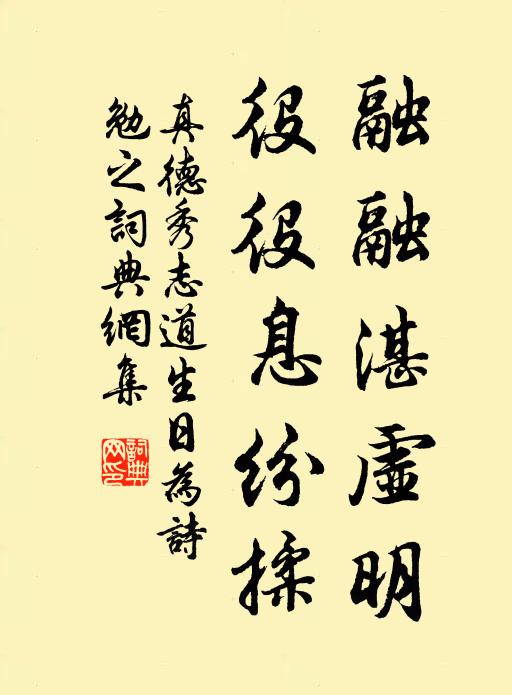 融融湛虛明
役役息紛揉
真德秀志道生日為詩
勉之詞典網集
詞典
网印